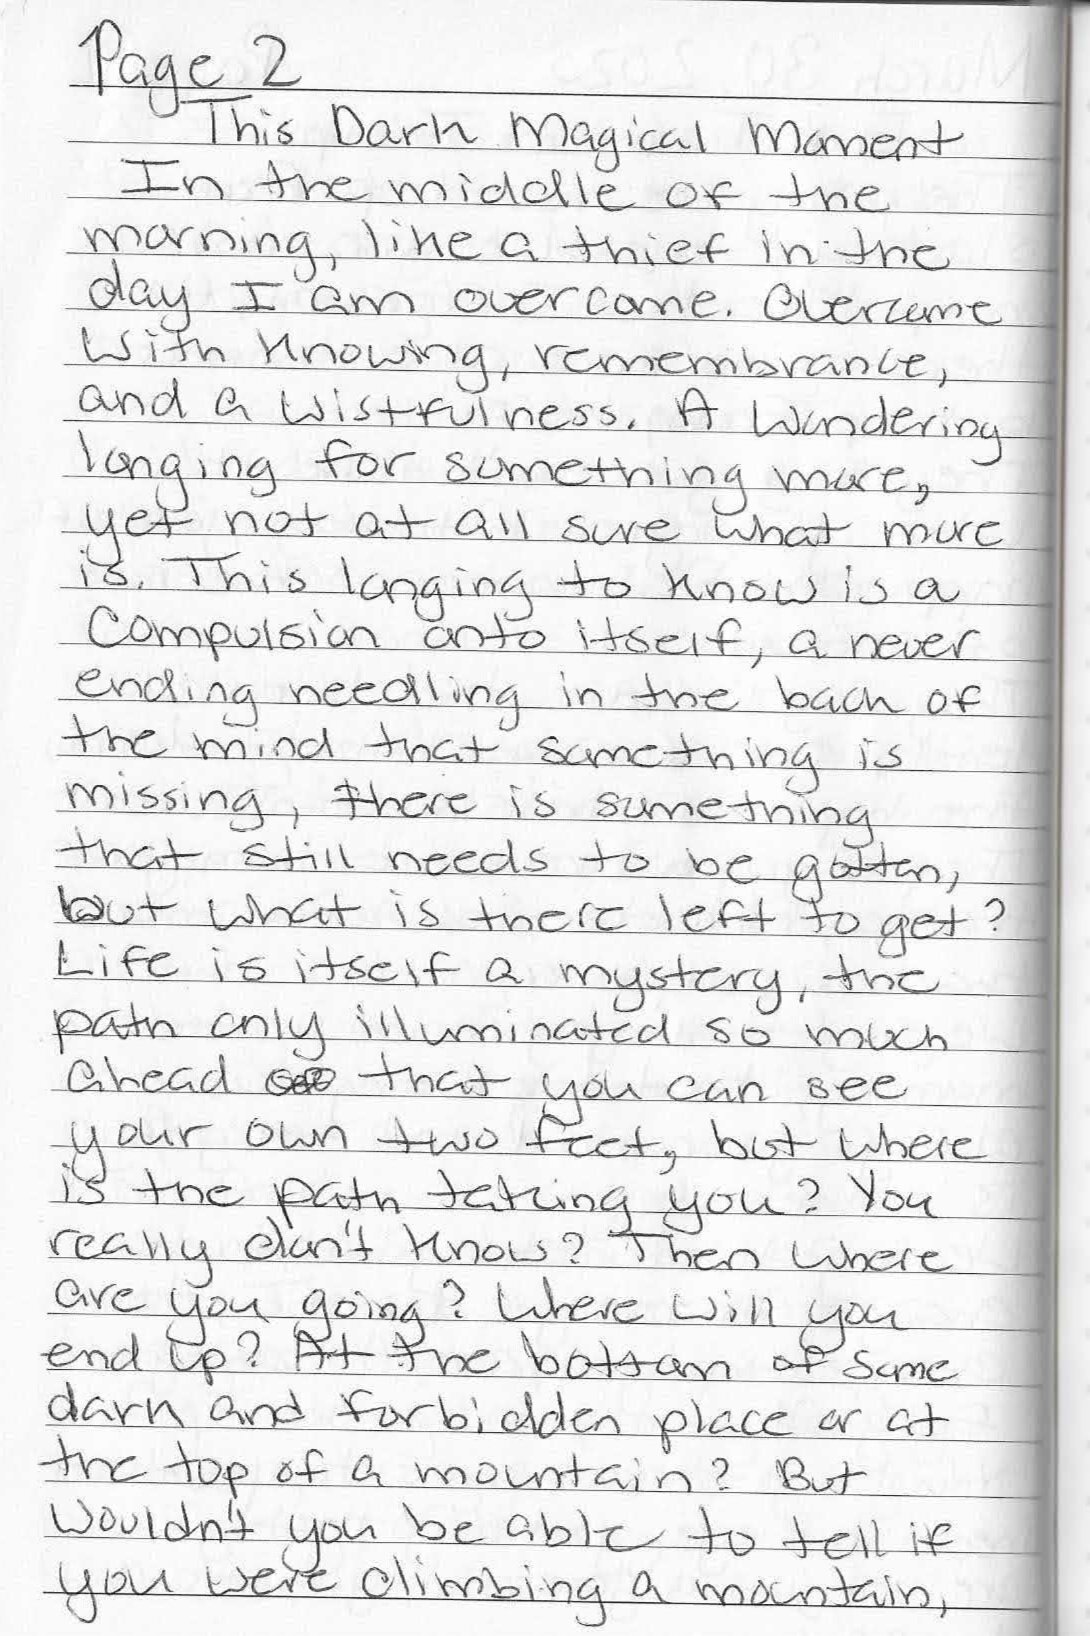 Page 2
This Dark Magical Moment
In the middle of the
morning, like a thief in the
day I am overcome. Overcome
with knowing, remembrance,
and a wistfulness. A wondering
longing for something more,
yet not at all sure what more
is. This longing to know is a
compulsion onto itself, a never
ending needling in the back of
the mind that something is
missing, there is something
that still needs to be gotten,
but what is there left to get?
Life is itself a mystery, the
path only illuminated so much
ahead that you can see
your own two feet, but where
is the path taking you? You
really don't know? Then where
are you going? Where will you
end up? At the bottom of some
dark and forbidden place or at
the top of a mountain? But
wouldn't you be able to tell if
you were climbing a mountain,